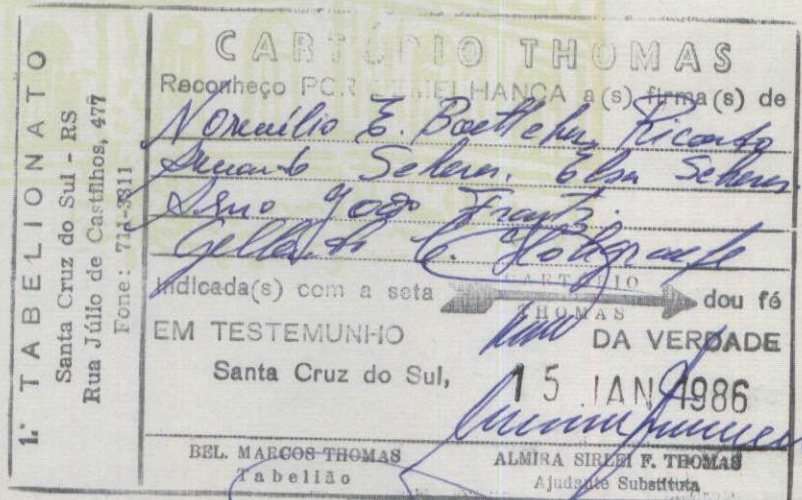 1.º TABELIONATO
Santa Cruz do Sul - RS
Rua Júlio de Castilhos, 477
Fone: 711-3311
CARTÓRIO THOMAS
Reconheço POR SEMELHANÇA a(s) firma(s) de
E. Ricardo
Scherer. Elsa Scherer
João Frantz.
indicada(s) com a seta
CARTÓRIO
THOMAS
dou fé
EM TESTEMUNHO
DA VERDADE
Santa Cruz do Sul,
15 JAN 1986
BEL. MARCOS THOMAS
Tabelião
ALMIRA SIRLEI F. THOMAS
Ajudante Substituta